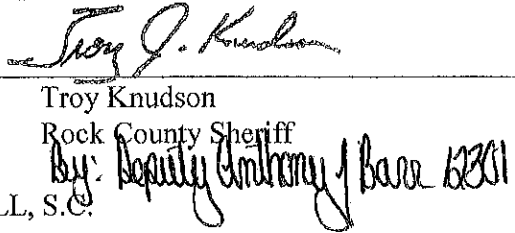 Troy J. Knudson
Troy Knudson
Rock County Sheriff
By: Deputy Anthony J Barr 12301
LL, S.C.